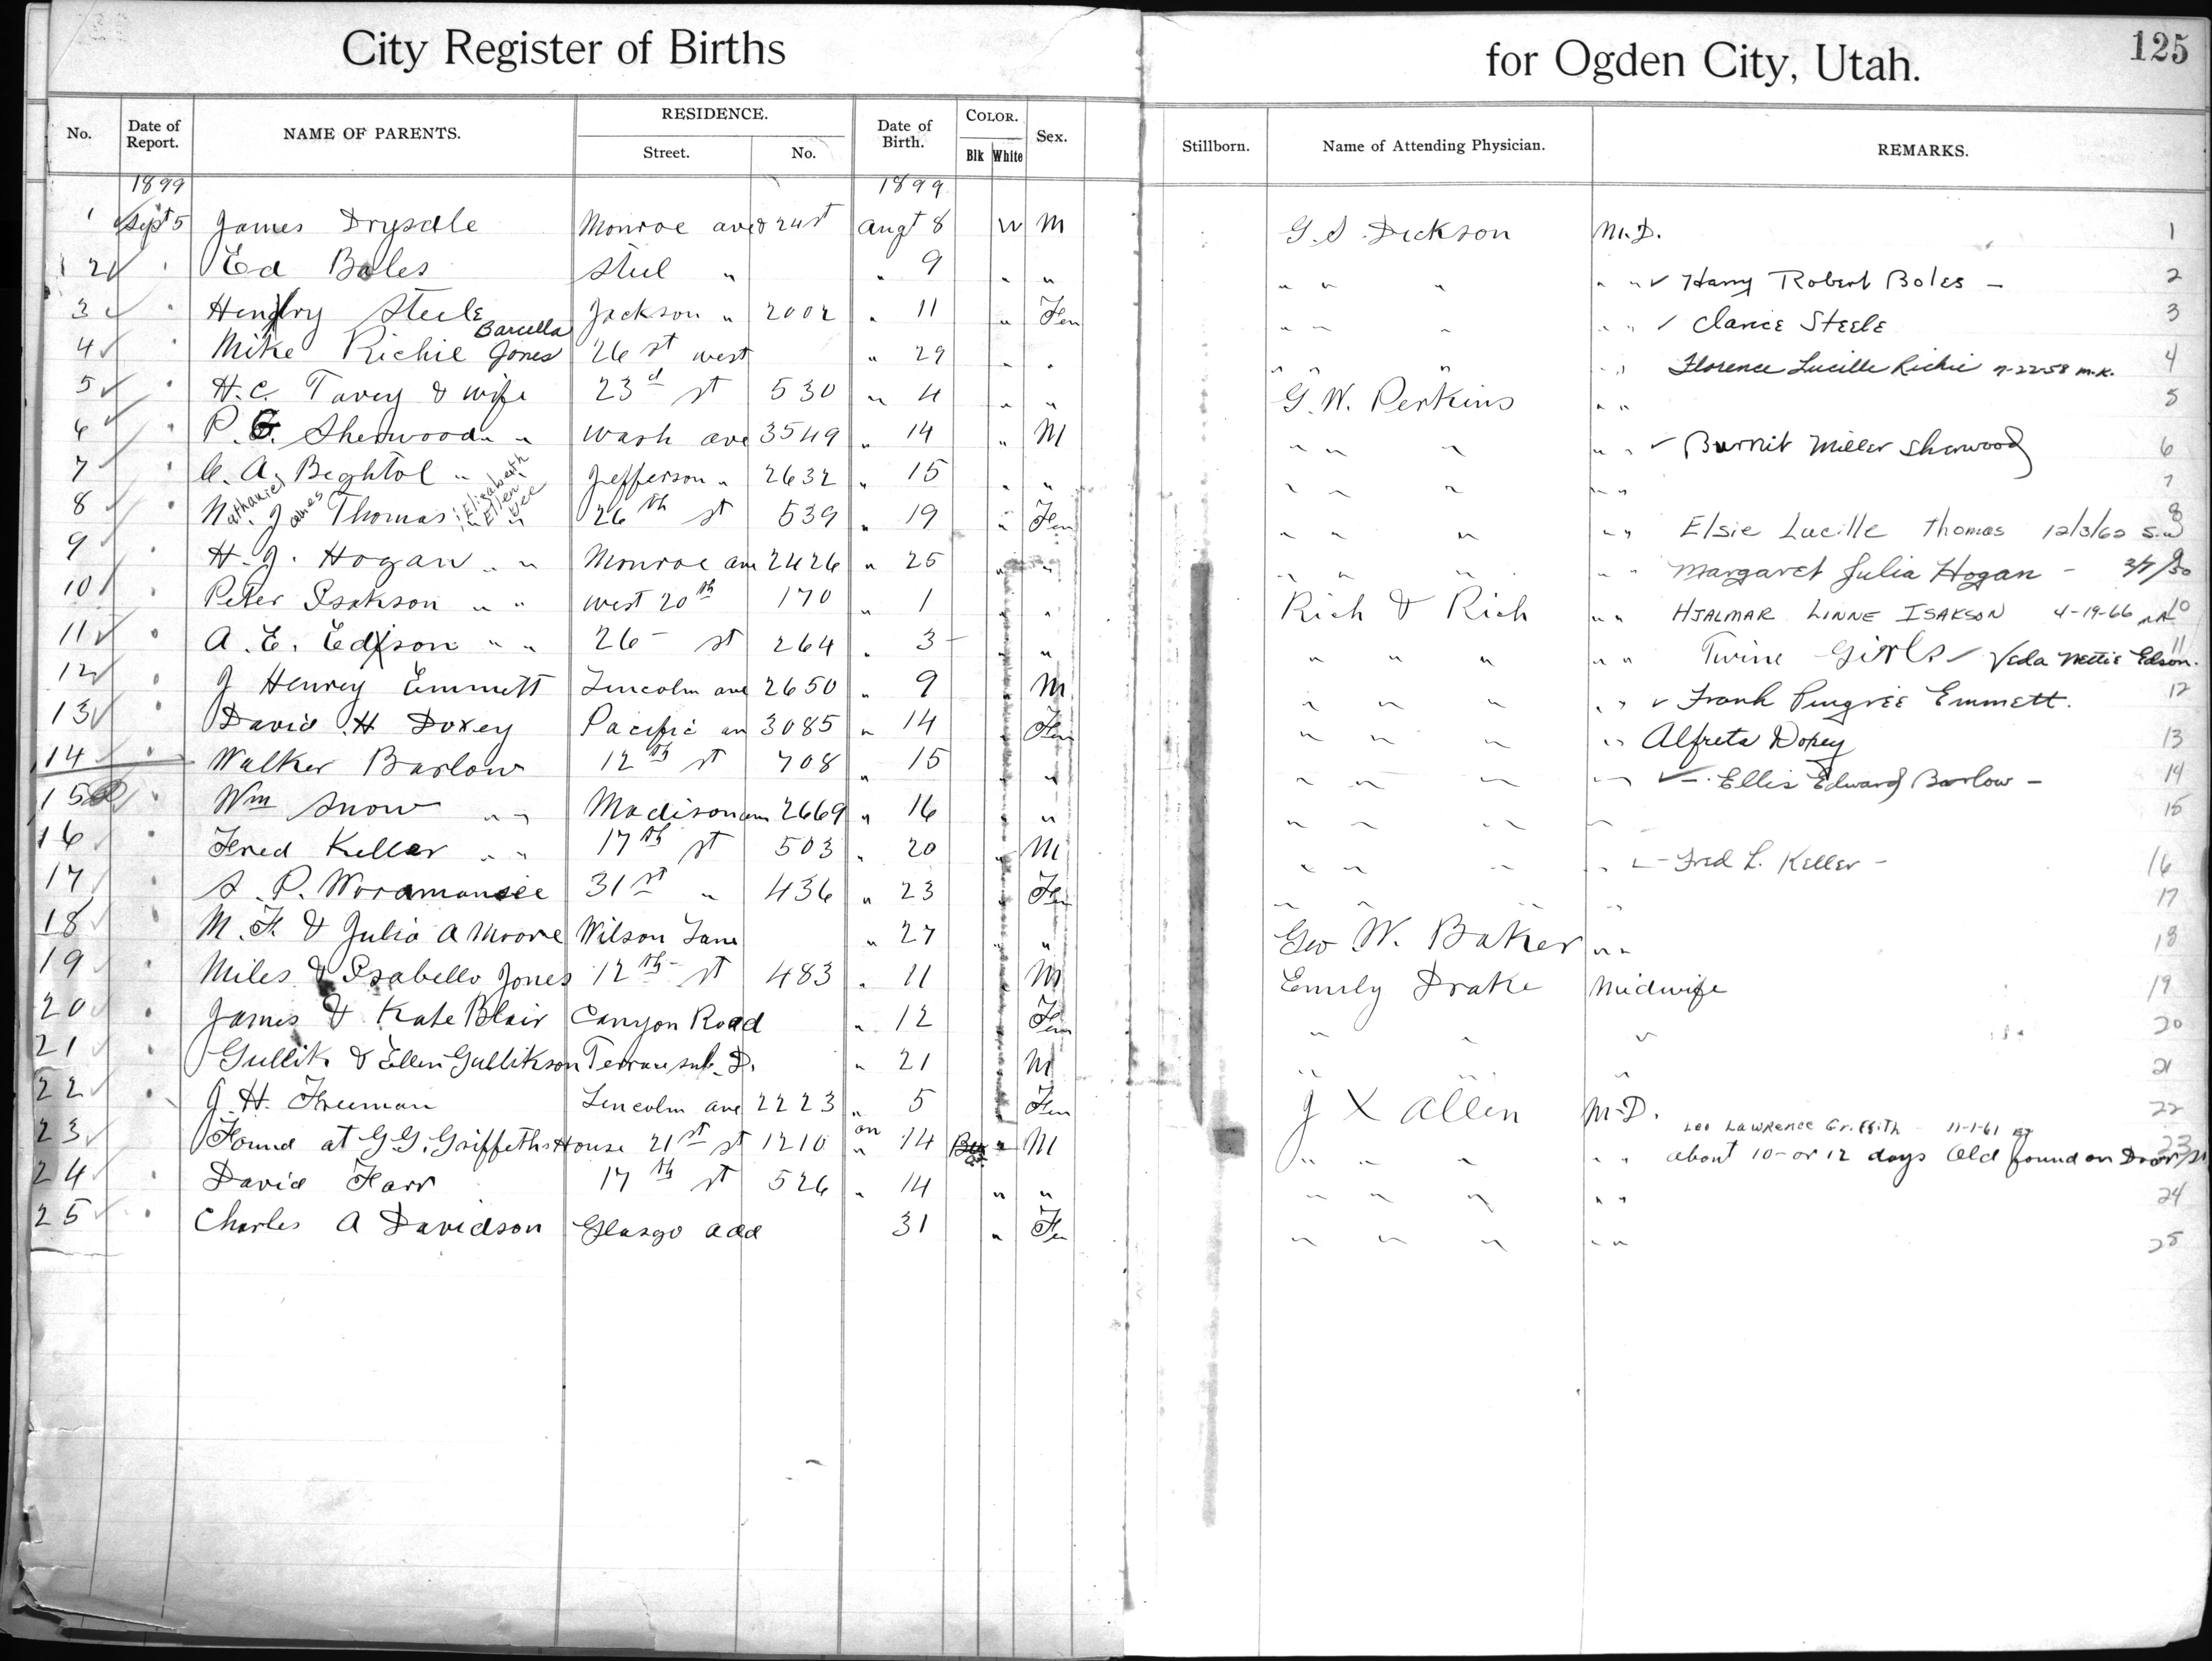 City Register of Births for Ogden City, Utah. 125
No. Date of Report. NAME OF PARENTS. RESIDENCE. Street. No. Date of Birth. COLOR. Blk White Sex. Stillborn. Name of Attending Physician. REMARKS.
1899 1899
1 Sept 5 James Drysdale Monroe ave & 21st Augt 8 W M G. S. Dickson M.D. 1
2 " Ed Boles Steel " " 9 " " " " " " " ✓ Harry Robert Boles - 2
3 " Henry Steele Jackson " 2002 " 11 " Fem " " " " " ✓ Clarice Steele 3
4 " Mike Richie Barcella Jones 26 st west " 29 " " " " " " " Florence Lucille Richie 7-22-58 m.k. 4
5 " H. C. Tavey & wife 23d st 530 " 4 " " G. W. Perkins " " 5
6 " P. G. Sherwood " " Wash ave 3549 " 14 " M " " " " " ✓ Burnit Miller Sherwood 6
7 " C. A. Beghtol " " Jefferson " 2632 " 15 " " " " " " " 7
8 " Nathaniel James Thomas " " Elizabeth Ellen Gee 26th st 539 " 19 " Fem " " " " " Elsie Lucille Thomas 12/3/62 S.W 8
9 " H. J. Hogan " " Monroe ave 2426 " 25 " " " " " " " Margaret Julia Hogan - 3/7/50 9
10 " Peter Isakson " " West 20th 170 " 1 " " Rich & Rich " " HJALMAR LINNE ISAKSON 4-19-66 10
11 " A. E. Edison " " 26 - st 264 " 3 - " " " " " " " Twine Girls ✓ Veda Nettie Edson. 11
12 " J Henrey Emmett Lincoln ave 2650 " 9 " M " " " " " ✓ Frank Pingree Emmett. 12
13 " David H Doxey Pacific av 3085 " 14 " Fem " " " " " Alfreta Doxey 13
14 " Walker Barlow 12th st 708 " 15 " " " " " " ✓ - Ellis Edward Barlow - 14
15 " Wm Snow " " Madison ave 2669 " 16 " " " " " " 15
16 " Fred Keller " " 17th st 503 " 20 " M " " " " " ✓ - Fred L. Keller - 16
17 " S. P. Woramansee 31st " 436 " 23 " Fem " " " " 17
18 " M. F. & Julia A Moore Wilson Lane " 27 " " Geo W. Baker " " 18
19 " Miles & Isabello Jones 12th - st 483 " 11 " M Emily Drake Midwife 19
20 " James & Kate Blair Canyon Road " 12 " Fem " " " 20
21 " Gullik & Ellen Gullikson Terrace sub. D. " 21 " M " " " 21
22 " J. H. Freeman Lincoln ave 2223 " 5 " Fem J X Allen M-D. 22
23 " Found at G.G. Griffeths House 21st st 1210 on " 14 " M " " " " " Leo Lawrence Griffith 11-1-61
about 10-or 12 days Old found on Door/St 23
24 " David Farr 17th st 526 " 14 " " " " " " " 24
25 " Charles A Davidson Glasgo add 31 " Fe " " " " " 25